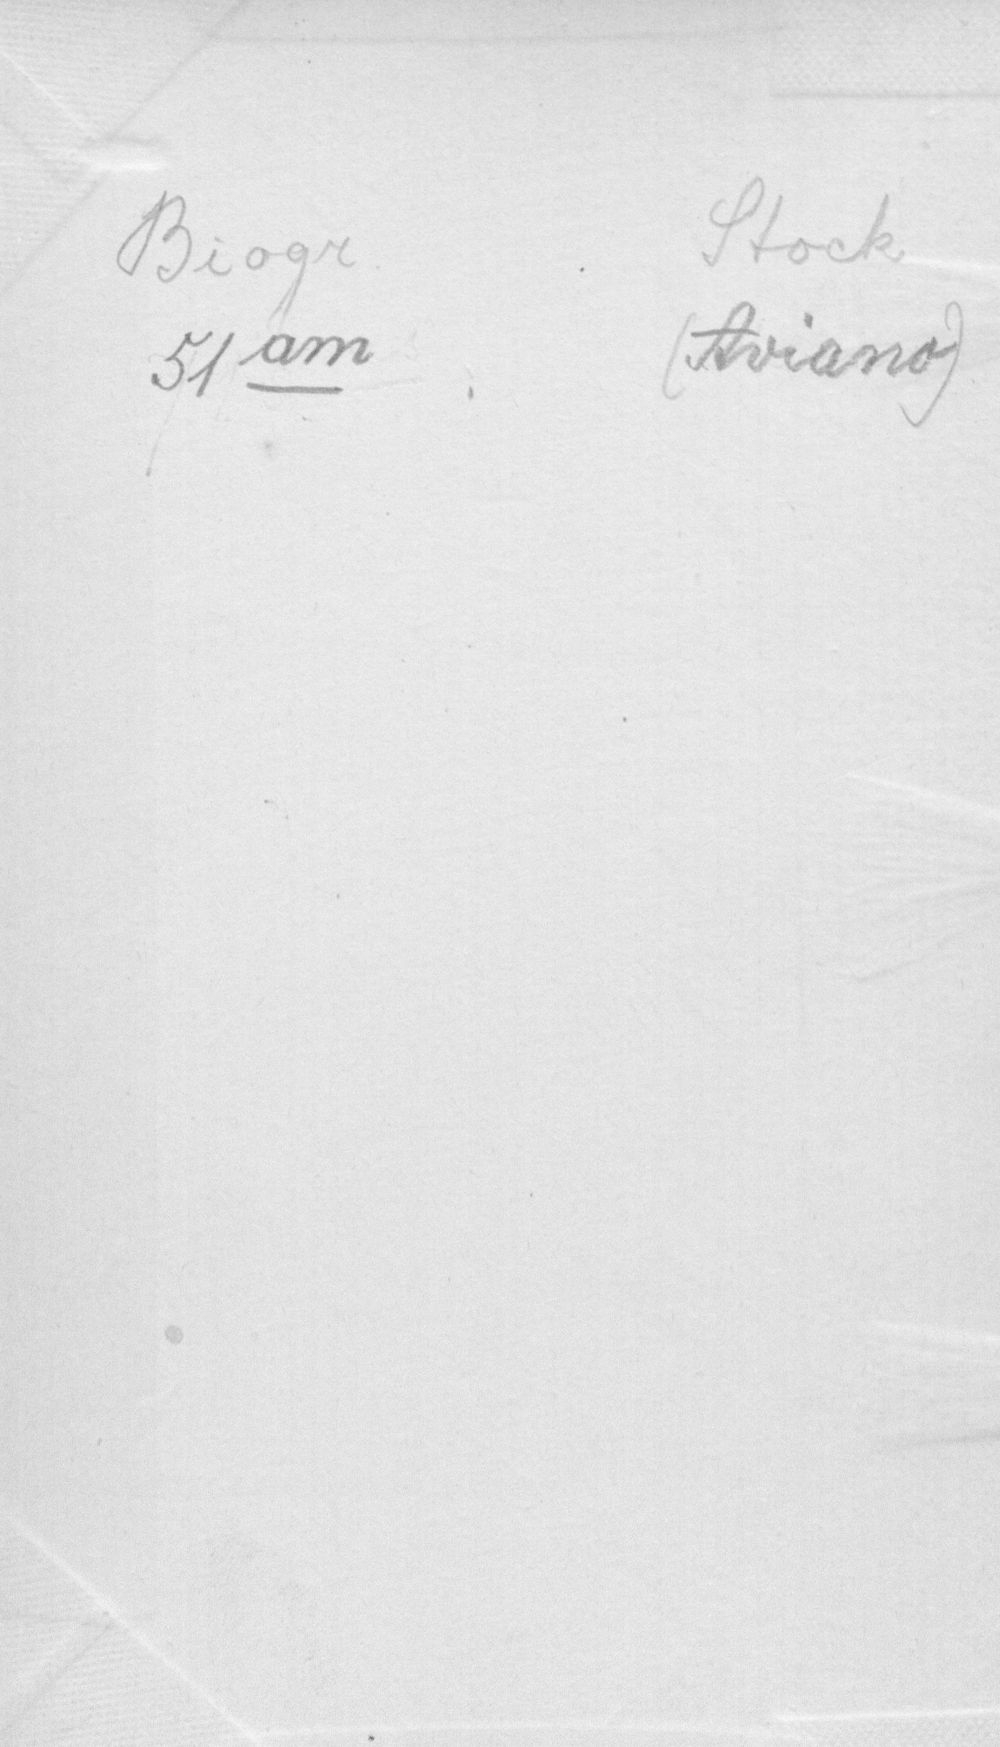 Biogr.
51 am
Stock
(Aviano)